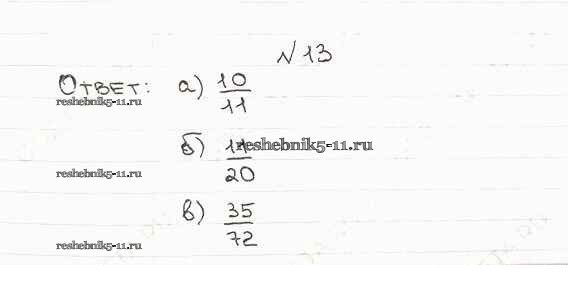 №13
Ответ: а) 10/11
reshebnik5-11.ru
б) 11/20
reshebnik5-11.ru
reshebnik5-11.ru
в) 35/72
reshebnik5-11.ru